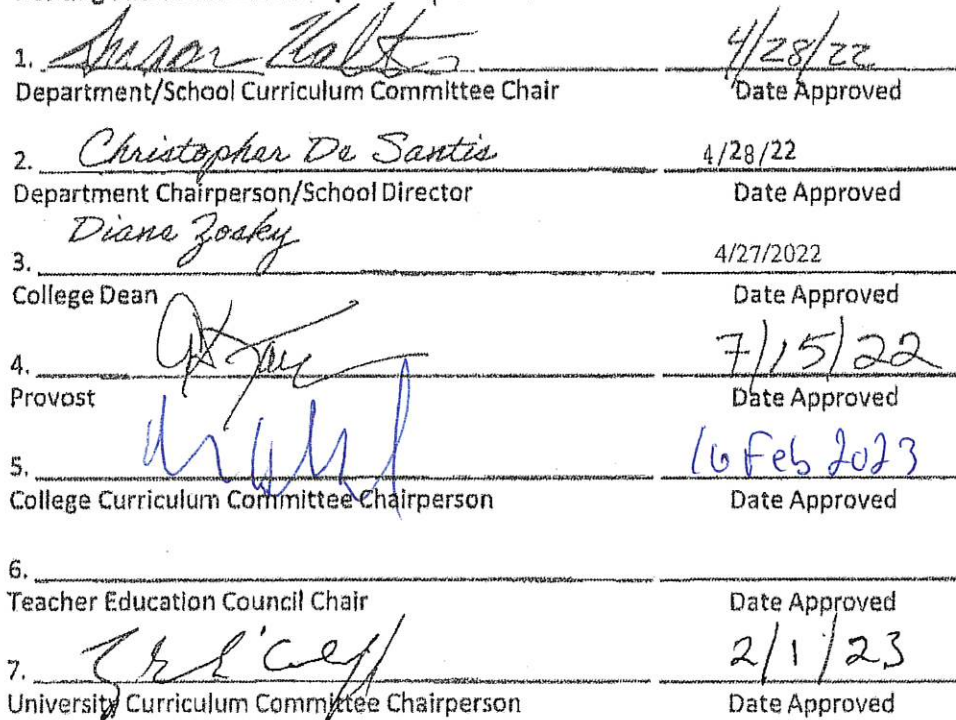 1. Susan Kalter 4/28/22
Department/School Curriculum Committee Chair Date Approved
2. Christopher De Santis 4/28/22
Department Chairperson/School Director Date Approved
Diane Zosky
3. 4/27/2022
College Dean Date Approved
4. 7/15/22
Provost Date Approved
5. 16 Feb 2023
College Curriculum Committee Chairperson Date Approved
6.
Teacher Education Council Chair Date Approved
7. 2/1/23
University Curriculum Committee Chairperson Date Approved